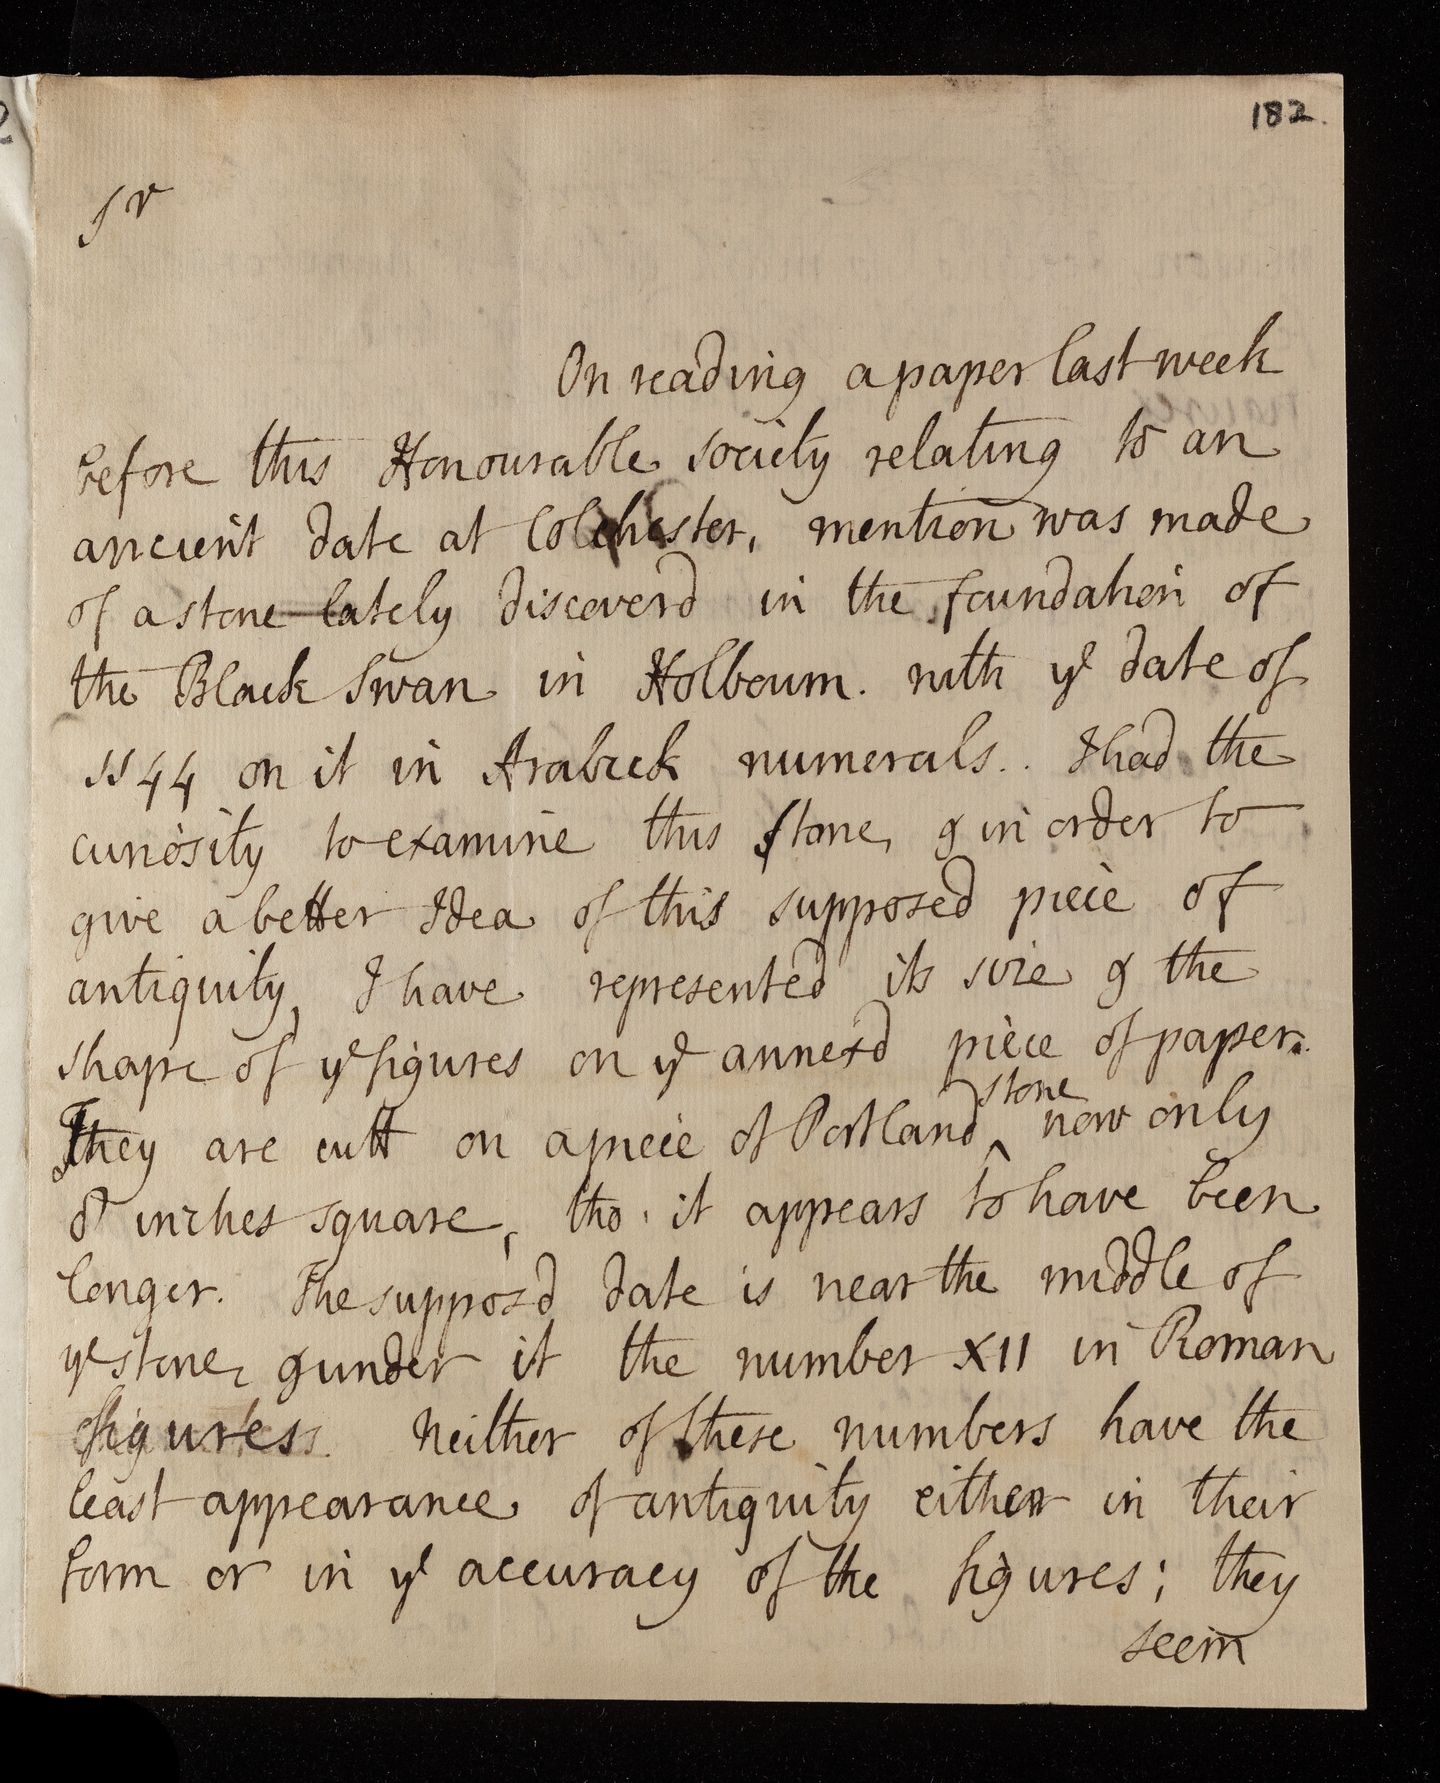 182.
Sr
On reading a paper last week
before this Honourable society relating to an
ancient date at Colchester, mention was made
of a stone lately discoverd in the foundation of
the Black Swan in Holbourn. with ye date of
1144 on it in Arabick numerals.. I had the
curiosity to examine this stone, & in order to
give a better Idea of this supposed piece of
antiquity, I have represented its size & the
shape of ye figures on ye annexd piece of paper.
They are cutt on a piece of Portland ^ stone now only
8 inches square, tho' it appears to have been
longer. The supposd date is near the middle of
ye stone, & under it the number XII in Roman
figures. Neither of these numbers have the
least appearance of antiquity either in their
form or in ye accuracy of the figures; they
seem